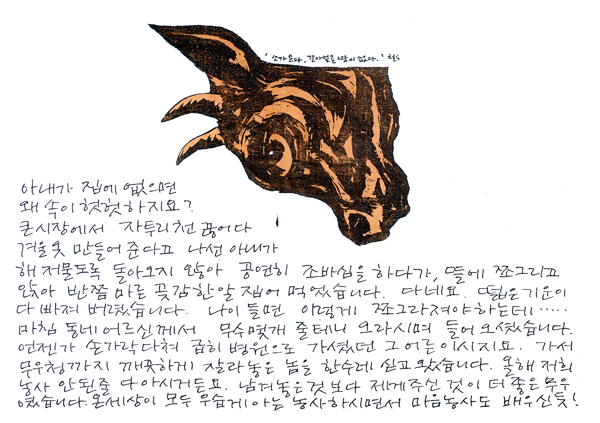 '소가 운다, 갈아엎을 땅이 없다.' 철수
아내가 집에 없으면
왜 속이 헛헛하지요?
큰시장에서 자투리천 끊어다
겨울옷 만들어 준다고 나선 아내가
해 저물도록 돌아오지 않아 공연히 조바심을 하다가, 뜰에 쪼그리고
앉아 반쯤 마른 곶감 한알 집어 먹었습니다. 다네요. 떫은기운이
다 빠져 버렸습니다. 나이 들면 이렇게 쪼그라져야하는데·····
마침 동네 어르신께서 무우몇개 줄테니 오라시며 들어 오셨습니다.
언젠가 손가락 다쳐 급히 병원으로 가셨던 그 어른이시지요. 가서
무우청까지 깨끗하게 잘라 놓은 놈을 한수레 싣고 왔습니다. 올해 저희
농사 안된줄 다 아시거든요. 남겨놓은 것보다 제게주신 것이 더 좋은 무우
였습니다. 온세상이 모두 우습게 아는 농사하시면서 마음농사도 배우신듯!